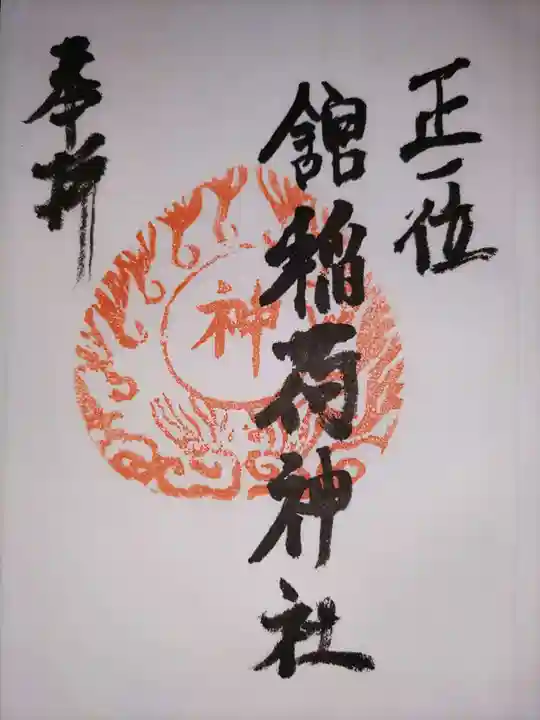 正一位
舘稲荷神社
神
奉拝